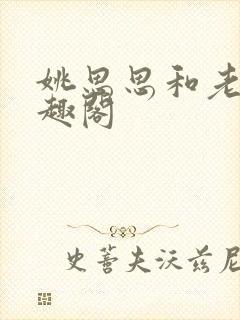 姚思思和老
趣阁
史蒂夫沃兹尼